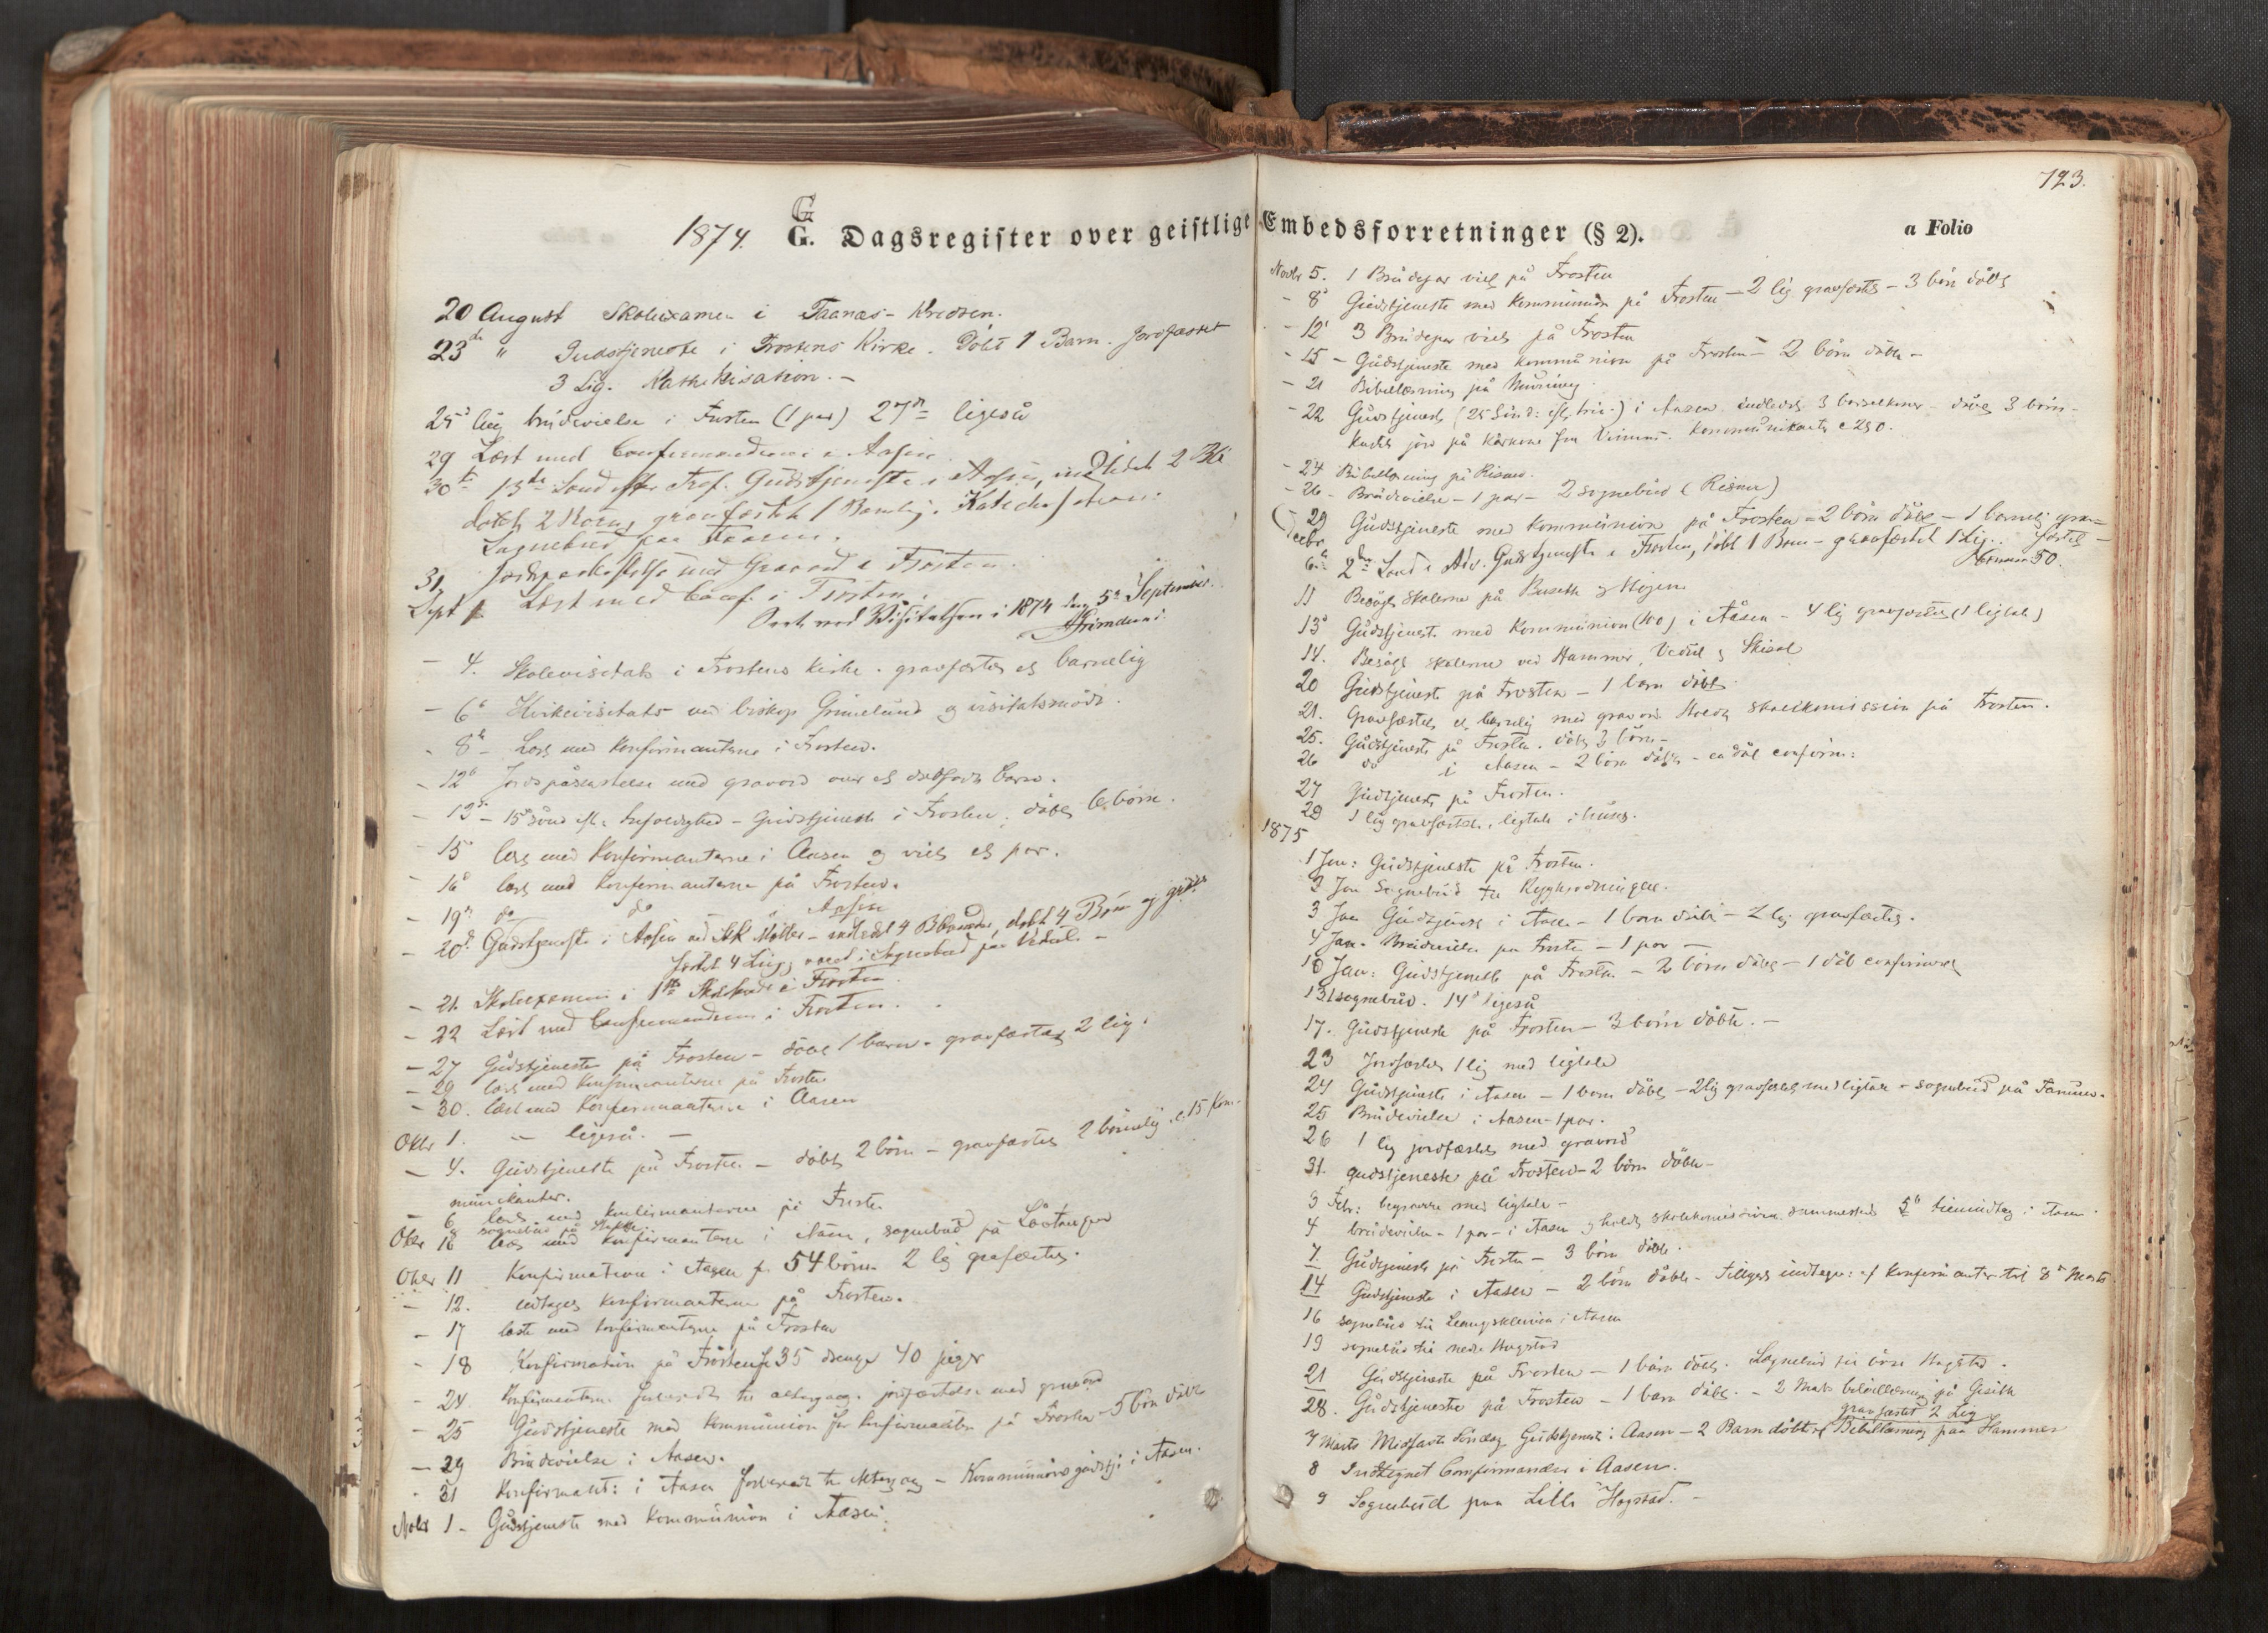 1874. G. Dagsregister over geistlige
20 August Skoleexamen i Kredsen.
23de " Gudstjeneste i Frostens Kirke. Döbt 1 Barn. Jordfæstet
3 Lig. Kathekisation. -
25d Aug brudevielse i Frosten (1 par) 27de ligeså
29 Læst med Confirmanderne i Aasen
30te 13de Sønd efter Tref. Gudstjeneste i Aasen, indledet 2
døbt 2 Børn, gravfæstet 1 Barnelig. Katechesation.
Sognebud paa
31. Jordpaakastelse med Gravord i Frosten.
Sept 1. Læst med Conf. i Frosten.
Seet ved Visitatsen i 1874 den 5te September.
AGrimelund.
- 4. Skolevisitats i Frostens Kirke. gravfæstes et barnelig
- 6te Kirkevisitats ved biskop Grimelund og visitatsmöde.
- 8de Læst med Konfirmanterne i Frosten.
- 12te Jordpåkastelse med gravord over et dödfödt barn.
- 13de - 15de Sönd eft. trefoldighed - Gudstjeneste i Frosten, döbtes 6 börn.
- 15 læst med Konfirmanterne i Aasen og viet et par.
- 16d læst med Konfirmanterne på Frosten.
- 19de do do i Aasen
- 20d Gudstjeneste i Aasen ved Møller - indledet 4 döbt 4 Börn og
4 Lig, Sognebud paa
- 21. Skoleexamen i 1ste i Frosten
- 22 Læst med Confirmanderne i Frosten.
- 27 Gudstjeneste på Frosten - döbt 1 barn. gravfæstet 2 lig.
- 29 læst med Konfirmanterne på Frosten
- 30. læst med Konfirmanterne i Aasen
Oktr 1. " ligeså. -
- 4. Gudstjeneste på Frosten - döbt 2 börn - gravfæstet 2 börnelig. 15 Kom-
munikanter.
- 6 læst med konfirmanterne på Frosten
8 sognebud på
Oktr 10 læst med Konfirmanterne i Aasen, sognebud på
Oktr 11 Konfirmation i Aasen f. 54 börn 2 lig grafæstes.
- 12. indtages Konfirmanterne på Frosten.
- 17 læste med konfirmanterne på Frosten
- 18 Konfirmation på Frosten f. 35 drenge 40 piger
- 24 Konfirmanterne forberedt til altergang. jordfæstelse med gravord
- 25 Gudstjeneste med Kommunion for Konfirmanter på Frosten - 5 börn döbte
- 29 Brudevielse i Aasen.
- 31 Konfirmant: i Aasen forberedt til Altergang - Kommunions gudstj: i Aasen.
Nobr 1 - Gudstjeneste med Kommunion i Aasen.
123.
Embedsforretninger (§ 2). a Folio
Novbr 5. 1 Brudepar viet på Frosten
- 8d Gudstjeneste med Kommunion på Frosten - 2 lig gravfæstes - 3 börn döbte
- 12t 3 Brudepar viet på Frosten
- 15 - Gudstjeneste med kommunion på Frosten - 2 börn döbte -
- 21 Bibellæsning på
- 22 Gudstjeneste (25 Sönd: eft. trin:) i Aasen indledet 3 barselkoner - döbt 3 börn -
kastet jord på Kommunikanter c 250.
- 24 Bibellæsning på
- 26 - Brudevielse - 1 par - 2 sognebud
- 29 Gudstjeneste med kommunion på Frosten - 2 börn döbte - 1 barnelig grav=
fæstet -
Decbr 6te 2den Sønd i Adv. Gudstjeneste i Frosten, döbt 1 Barn - gravfæstet 1 Lig. 50.
11 Besøgt skolerne på og
13d Gudstjeneste med Kommunion (100) i Aasen - 4 lig gravfæstet (1 ligtale)
14. Besögt skolerne ved Hammer, og
20 Gudstjeneste på Frosten - 1 barn döbt
21. Gravfæstet et barnelig med gravord. Holdt skolekomission på Frosten.
25. Gudstjeneste på Frosten. döbt 3 börn -
26 do i Aasen - 2 börn döbte - en döbt confirm:
27 Gudtjeneste på Frosten.
29 1 lig gravfæstet, ligtale i huset.
1875
1 Jan: Gudstjeneste på Frosten.
2 Jan Sognebud til
3 Jan Gudstjeneste i Aasen - 1 barn döbt - 2 lig gravfæstes.
4 Jan. Brudevielse på Frosten - 1 par -
10 Jan: Gudstjeneste på Frosten - 2 börn döbt - 1 döb confirmeret
13 1 sognebud. 14d ligeså
17. Gudstjeneste på Frosten - 3 börn döbte. -
23 Jordfæstet 1 lig med ligtale
24 Gudstjeneste i Aasen - 1 barn döbt - 2 lig gravfæstet med ligtale - sognebud på
25 Brudevielse i Aasen - 1 par.
26 1 lig jordfæstet med gravord
31. gudstjeneste på Frosten - 2 börn döbte -
3 Febr: begravelse med ligtale -
4 brudevielse - 1 par - i Aasen og holdt skolekomission sammesteds 5te i Aasen.
7 Gudstjeneste på Frosten - 3 börn döbte.
14 Gudstjeneste i Aasen - 2 börn döbte - Tillyst indtegn: af Konfirmanter til 8de Marts.
16 sognebud til i Aasen
19 sognebud til nedre Hogstad
21 Gudstjeneste på Frosten - 1 barn döbt. Sognebud til övre Hogstad.
28. Gudstjeneste på Frosten - 1 barn döbt. - 2 Marts bibellæsning på
gravfæstet 2 Lig
7 Marts Midfaste Söndag Gudstjenest i Aasen - 2 Barn döbt. Bibellæsning paa Hammer
8 Indtegnet Confirmander i Aasen.
9 Sognebud paa Lille Hogstad. -